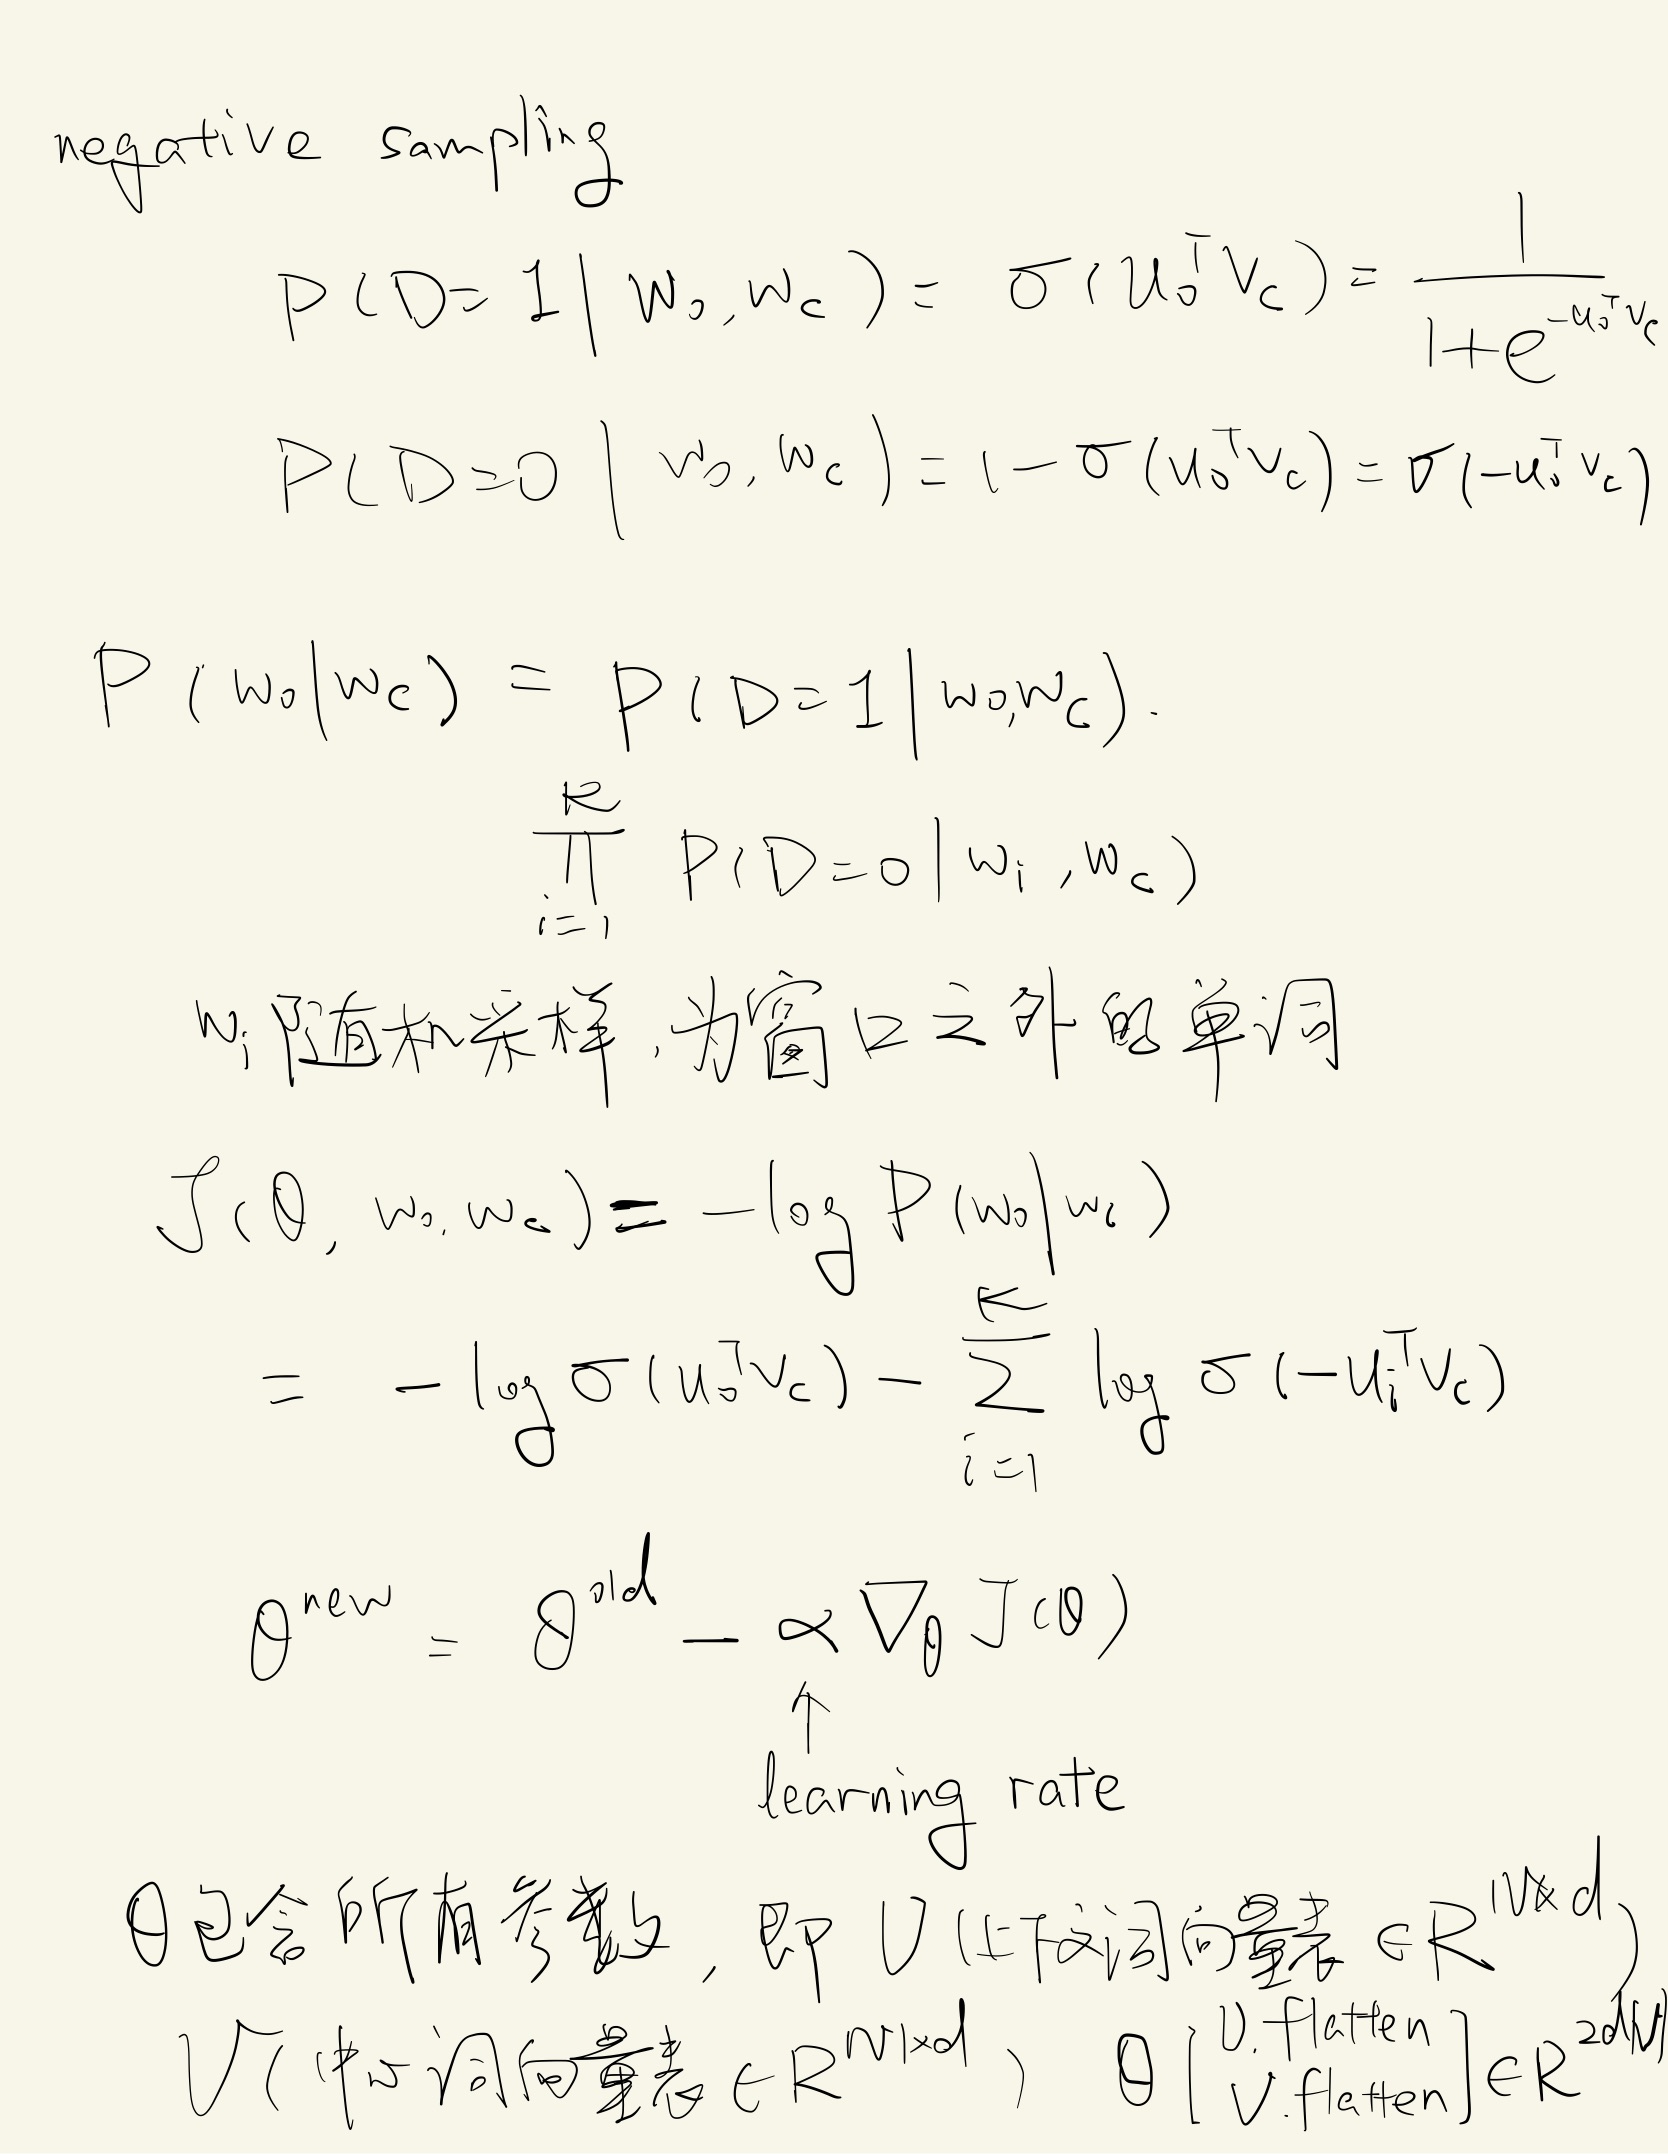 negative sampling
P(D=1 | w₀, w_c) = σ(u₀ᵀ v_c) = 1 / (1+e^(-u₀ᵀ v_c))
P(D=0 | w₀, w_c) = 1 - σ(u₀ᵀ v_c) = σ(-u₀ᵀ v_c)
P(w₀|w_c) = P(D=1 | w₀, w_c) ·
∏_{i=1}^{K} P(D=0 | w_i, w_c)
w_i 随机采样,为窗口之外的单词
J(θ, w₀, w_c) = -log P(w₀|w_c)
= -log σ(u₀ᵀ v_c) - ∑_{i=1}^{K} log σ(-u_iᵀ v_c)
θ^new = θ^old - α ∇_θ J(θ)
↑
learning rate
θ包含所有参数, 即 U (上下文词向量表 ∈ R^{|V|×d})
V (中心词向量表 ∈ R^{|V|×d}) θ [U.flatten
V.flatten] ∈ R^{2d|V|}